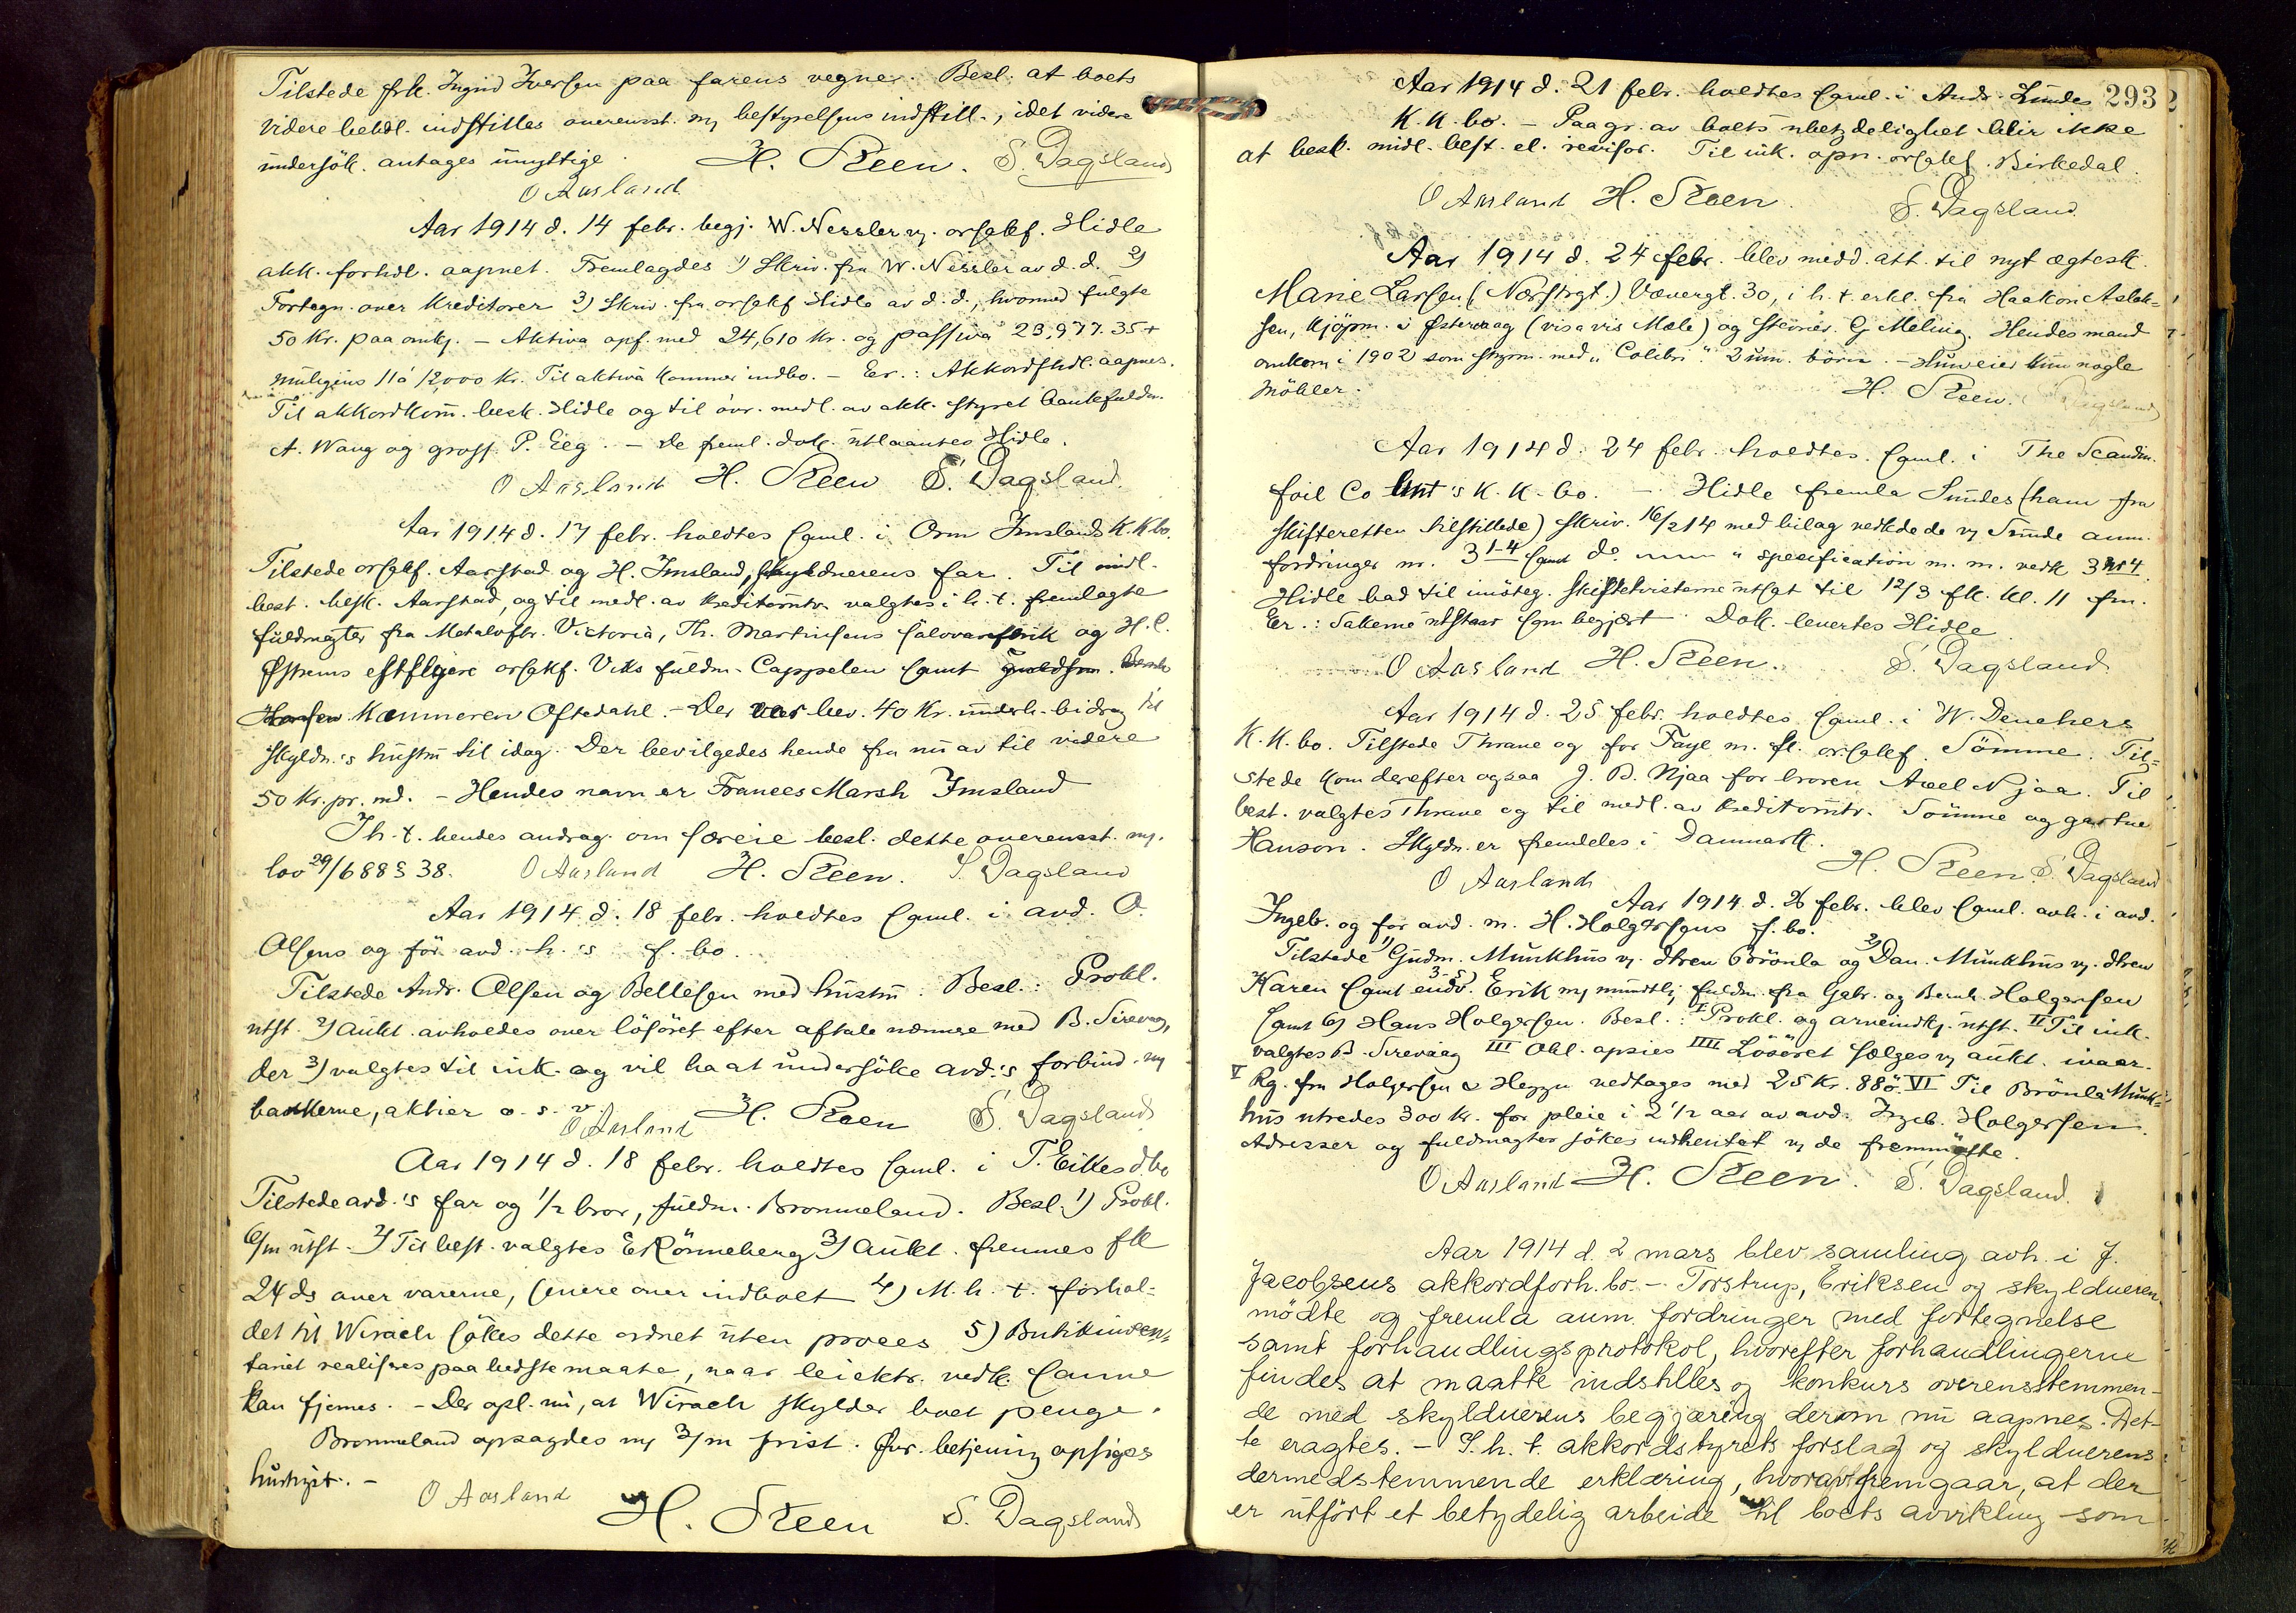 Tilstede frk. Ingrid Iversen paa farens vegner. Besl. at boets
videre behdl. indstilles overensst. m/ bestyrelsens indstill., idet videre
undersök. antages unyttige. H. Steen. S. Dagsland
O Aasland
Aar 1914 d. 14 febr. begj. W. Nessler v/ orsakf. Hidle
akk. forhdl. aapnet. Fremlagdes 1) Skriv. fra W. Nessler av d. d. 2)
Fortegn. over kreditorer 3) Skriv. fra orsakf Hidle av d. d., hvormed fulgte
50 kr. paa omk. - Aktiva opf. med 24,610 kr. og passiva 23,977.35 +
muligens 11 à 12000 kr. Til aktiva kommer indbo. - Er.: Akkordfhdl. aapnes.
Til akkordkom. besk. Hidle og til övr. medl. av akk. styret bankfuldm.
A. Waug og gross. P. Eeg. - De freml. dok. utlaantes Hidle.
O Aasland H. Steen S. Dagsland.
Aar 1914 d. 17 febr. holdtes saml. i Orm Imslands K. K. bo.
Tilstede orsakf. Aarstad og H. Imsland, skyldnerens far. Til midl.
best. besk. Aarstad, og til medl. av kreditorutv. valgtes i h. t. fremlagte
fuldmagter fra Metalvftr. Victoria, Th. Martinsens salovarefbrik og H. C.
Østrems eftflgere orsakf. Viks fuldm. Cappelen samt guldsm. Bernh
Hansen Kæmneren Oftedahl. - Der blev bev. 40 kr. underh. bidrag til
skyldn.'s hustru til idag. Der bevilgedes hende fra nu av til videre
50 kr. pr. md. - Hendes navn er Frances Marsh Imsland
I h. t. hendes andrag. om særeie besl. dette overensst. m/
lov 29/6 88 § 38. O Aasland H. Steen. S. Dagsland
Aar 1914 d. 18 febr. holdtes saml. i avd. O.
Olsens og för avd. h.'s f. bo.
Tilstede Andr. Olsen og Bellesen med hustru. Besl.: Prokl.
utst. 2) Aukt. avholdes over lösöret efter aftale nærmere med B. Sirevaag,
der 3) valgtes til ink. og vil ha at undersöke avd.'s forbind. m/
bankerne, aktier o. s. v.
O Aasland H. Steen S. Dagsland
Aar 1914 d. 18 febr. holdtes saml. i T. Eikes dbo
Tilstede avd.'s far og 1/2 bror, fuldm. Brommeland. Besl. 1) Prokl.
6/m utst. 2) Til best. valgtes E Rönneberg 3) Aukt. fremmes fk
24 ds over varerne, senere over indboet 4) M. h. t. forhol-
det til Wirach sökes dette ordnet uten proces 5) Butikinven-
tariet realiseres paa bedste maate, naar leiektr. vedk. samme
kan fjernes. - Der opl. nu, at Wirach skylder boet penge.
Brommeland opsagdes m/ 3/m frist. Övr. betjening opsiges
hurtigst. -
O Aasland H. Steen S. Dagsland
293
Aar 1914 d. 21 febr. holdtes saml. i Andr. Lundes
K. K. bo. - Paa gr. av boets ubetydelighet blir ikke
at besk. midl. best. el. revisor. Til ink. opn. orsakf. Birkedal.
O Aasland H. Steen. S. Dagsland.
Aar 1914 d. 24 febr. blev medd. att. til nyt ægtesk.
Marie Larsen (Nærstrgt.) Vævergt. 30, i h. t. erkl. fra Haakon Aslak-
sen, kjöpm. i Østervaag (vis a vis Mæle) og stenar. G Meling. Hendes mand
omkom i 1902 som styrm. med "Colibri" 2 um. börn. - Hun eier kun nogle
möbler. H. Steen. S. Dagsland
Aar 1914 d. 24 febr. holdtes saml. i The Scandin.
foil Co Lmt's K. K. bo. - Hidle fremla Sundes (ham fra
skifteretten tilstillede) skriv. 16/2 14 med bilag vedkdede v/ Sunde anm.
fordringer nr. 3 1-4 samt do " spesification m. m. vedk 3 nr 4.
Hidle bad til imöteg. skiftetvisterne utsat til 12/3 fk. kl. 11 fm.
Er.: Sakerne utstaar som begjært. Dok. levertes Hidle.
O Aasland H. Steen. S. Dagsland
Aar 1914 d. 25 febr. holdtes saml. i W. Denckers
K. K. bo. Tilstede Thrane og for Faye m. fl. orsakf. Sömme. Til-
stede kom derefter ogsaa J. B. Njaa for broren Axel Njaa. Til
best. valgtes Thrane og til medl. av kreditorutv. Sömme og gartner
Hanson. Skyldn. er fremdeles i Danmark.
O Aasland H. Steen. S. Dagsland
Aar 1914 d. 26 febr. blev saml. avh. i avd.
Ingeb. og för avd. m. H. Holgersens f. bo.
Tilstede 1) Gudm. Munkhus v/ dtren Brönla og 2) Dan. Munkhus v/ dtren
Karen samt endv. 3-5) Erik m/ mundtlig fuldm. fra Gabr. og Bernh. Holgersen
samt 6) Hans Holgersen. Besl.: I Prokl. og arveindk. utst. II Til ink.
valgtes B. Sirevaag III Obl. opsies IIII Lösöret sælges v/ aukt. ivaar.
V Rg. fra Holgersen & Hegge vedtages med 25 kr. 88 ö. VI Til Brönla Munk-
hus utredes 300 kr. for pleie i 2 1/2 aar av avd. Ingeb. Holgersen.
Adresser og fuldmagter sökes indhentet v/ de fremmötte.
O Aasland H. Steen. S. Dagsland.
Aar 1914 d. 2 mars blev samling avh. i J.
Jacobsens akkordforh. bo. - Torstrup, Eriksen og skyldneren
mödte og fremla anm. fordringer med fortegnelse
samt forhandlingsprotokol, hvorefter forhandlingerne
findes at maatte indstilles og konkurs overensstemmen-
de med skyldnerens begjæring derom nu aapnes. Det-
te eragtes. - I. h. t. akkordstyrets forslag og skyldnerens
dermed stemmende erklæring, hvorav fremgaar, at der
er utført et betydelig arbeide til boets avvikling som